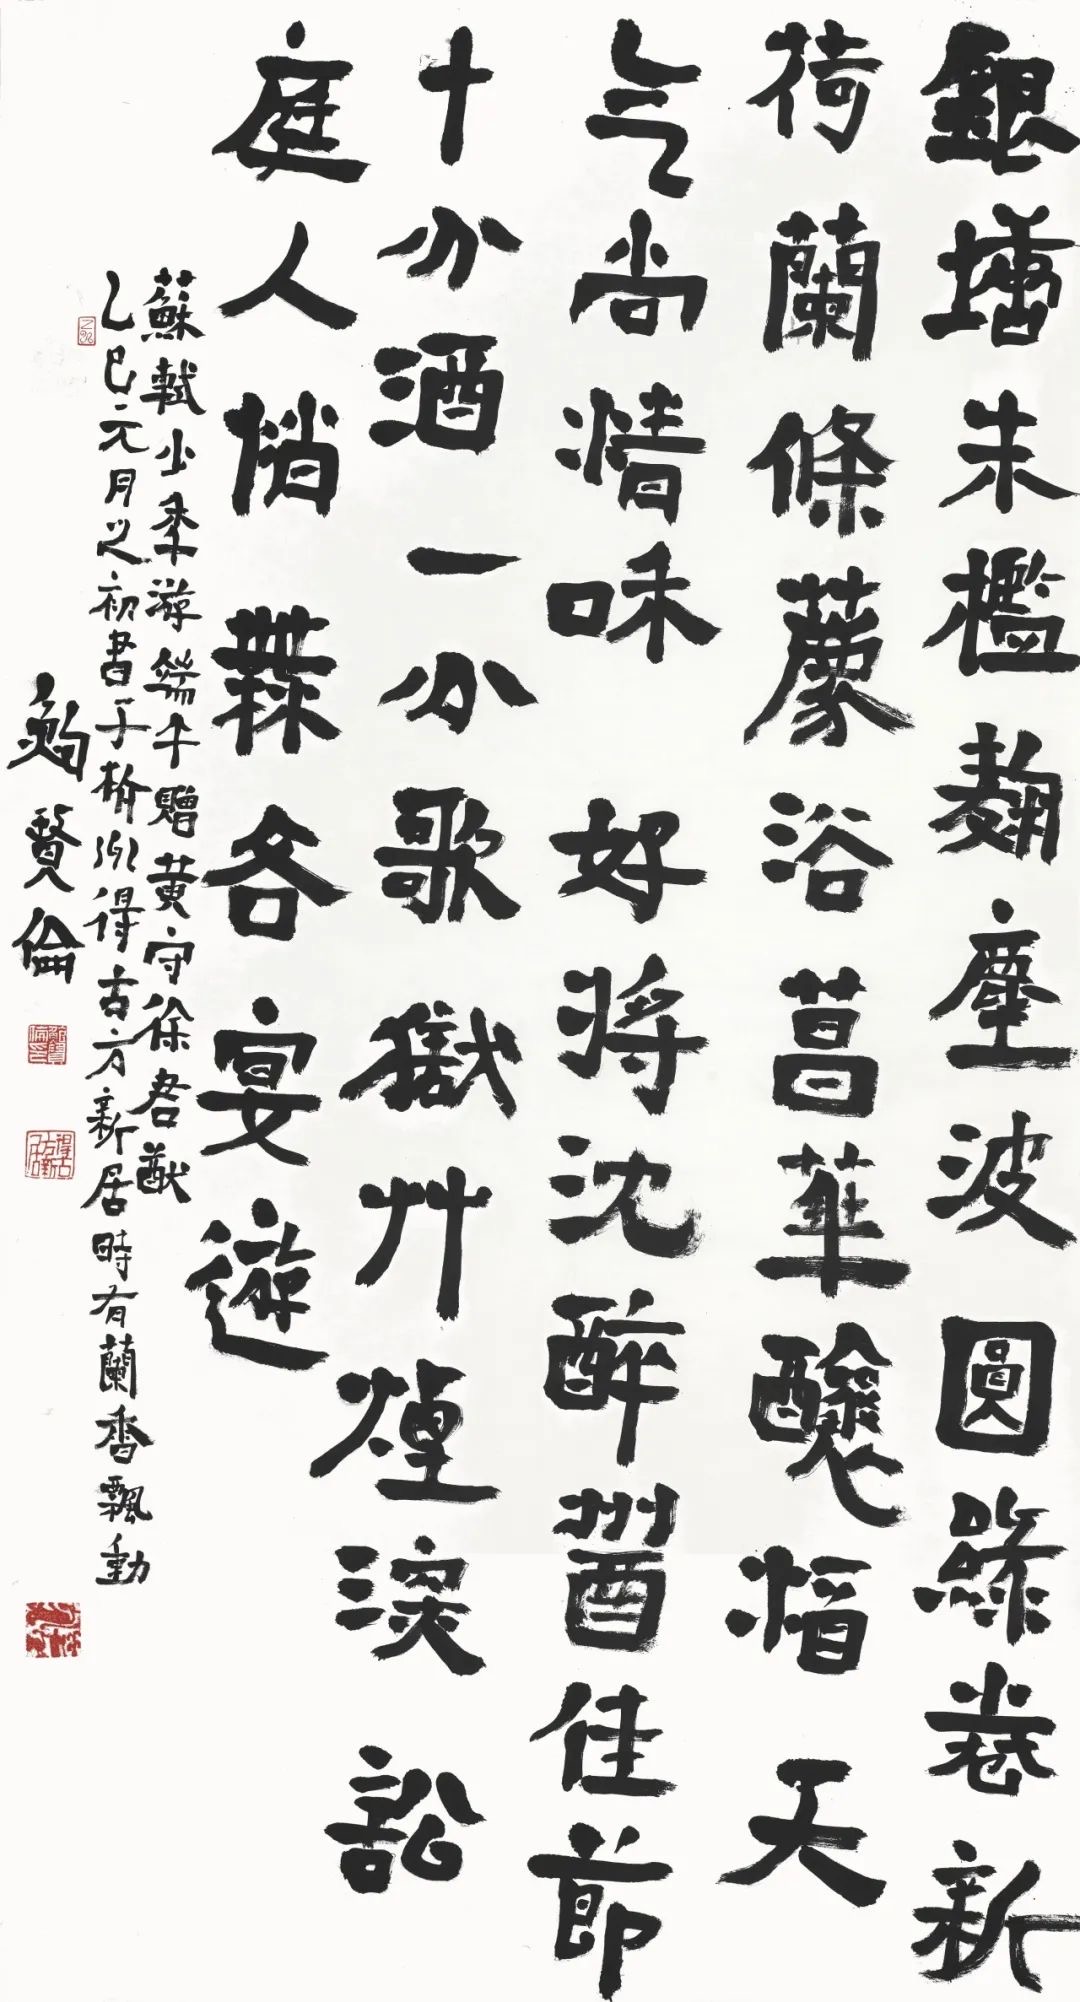 銀塘朱檻麴塵波圓綠卷新
荷蘭條薦浴菖華釀酒天
气尚清和好將沈醉酬佳節
十分酒一分歌獄艸煙深訟
庭人悄無吝宴遊
蘇軾少年游端午贈黃守徐君猷
乙巳元月之初書于榆次得古方新居時有蘭香飄動
賢倫